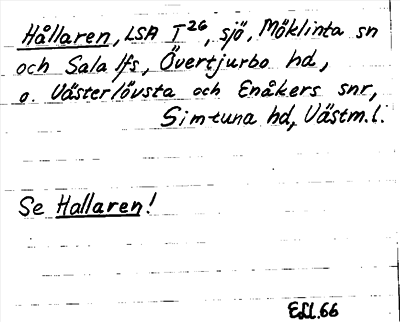 Hållaren, LSA I 26, sjö, Möklinta sn
och Sala lfs, Övertjurbo hd,
o. Västerlövsta och Enåkers snr,
Simtuna hd, Västm.l.
Se Hallaren!
E.Ll.66